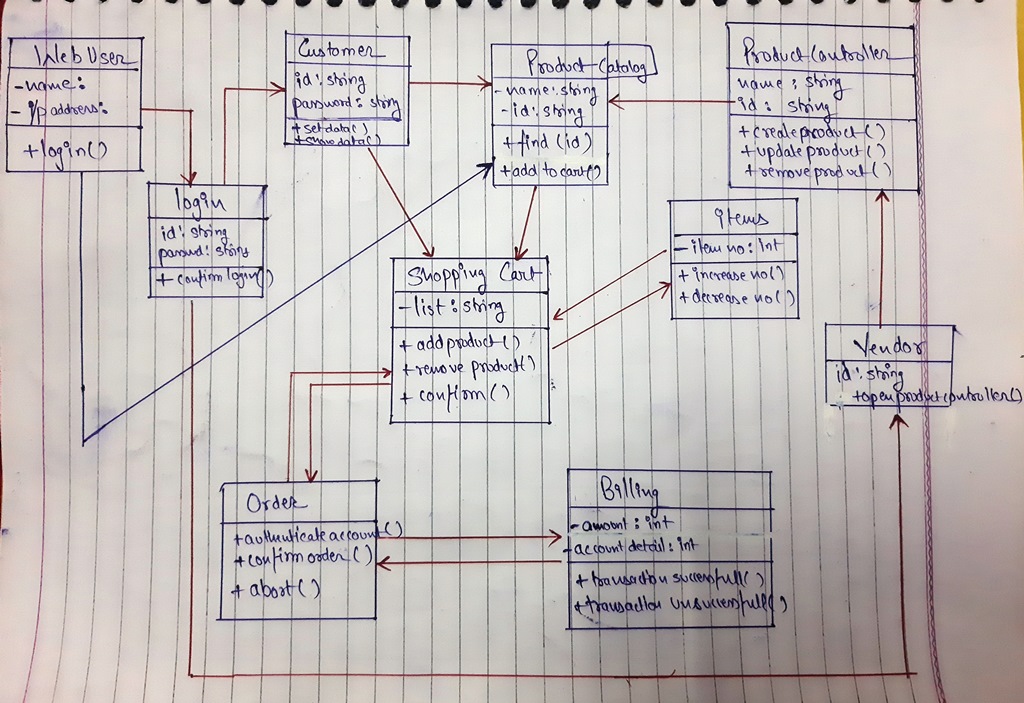 Web User
- name:
- ip address:
+ login()
Customer
id: string
password: string
+ setdata()
+ showdata()
Product Catalog
- name: string
- id: string
+ find (id)
+ add to cart()
Product Controller
name : string
id : string
+ createproduct()
+ updateproduct()
+ removeproduct()
login
id: string
passwd: string
+ confirm login()
Shopping Cart
- list : string
+ addproduct()
+ remove product()
+ confirm()
items
- item no: Int
+ increase no()
+ decrease no()
Vendor
id: string
+openproductcontroller()
Order
+authenticate account()
+confirm order()
+ abort()
Billing
- amount : int
- account detail : int
+ transaction successfull()
+ transaction unsuccessfull()